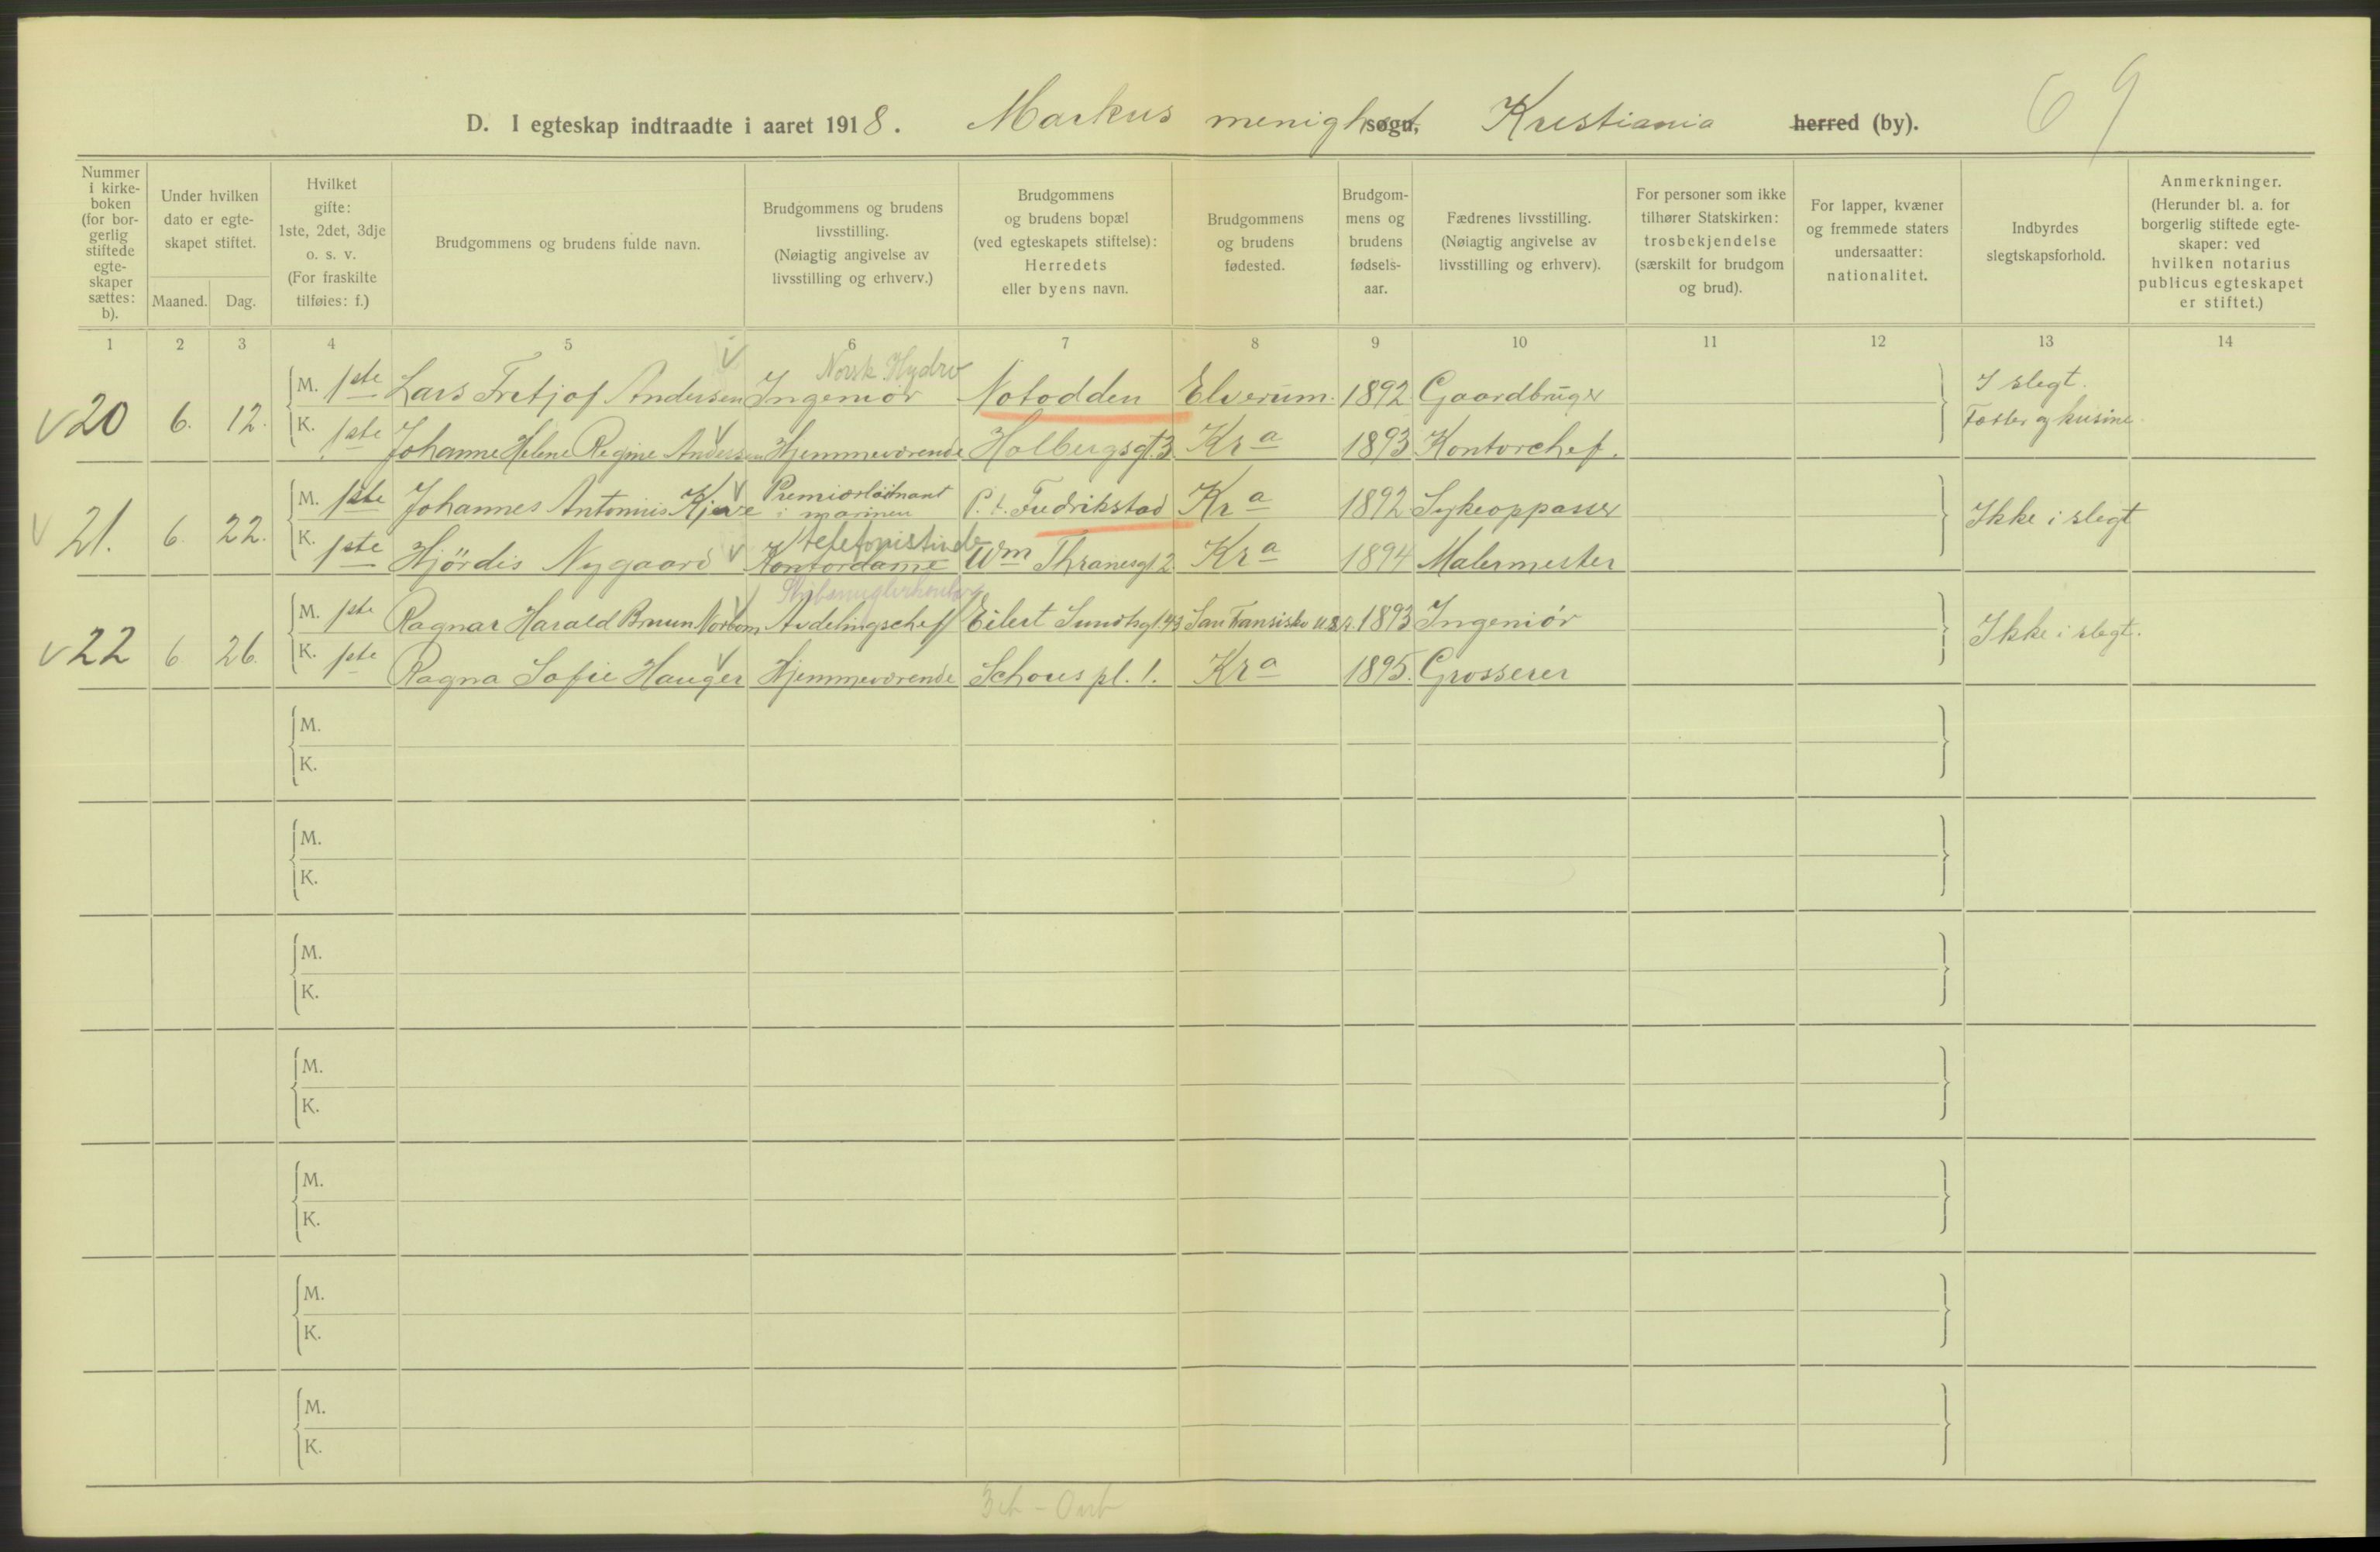 D. I egteskap indtraadte i aaret 1918. Markus menighet søgn, Kristiania herred (by). 69
Nummer i kirke-boken (for bor-gerlig stiftede egte-skaper sættes: b).
Under hvilken dato er egte-skapet stiftet.
Maaned. Dag.
Hvilket gifte: 1ste, 2det, 3dje o. s. v. (For fraskilte tilføies: f.)
Brudgommens og brudens fulde navn.
Brudgommens og brudens livsstilling. (Nøiagtig angivelse av livsstilling og erhverv.)
Brudgommens og brudens bopæl (ved egteskapets stiftelse): Herredets eller byens navn.
Brudgommens og brudens fødested.
Brudgom-mens og brudens fødsels-aar.
Fædrenes livsstilling. (Nøiagtig angivelse av livsstilling og erhverv).
For personer som ikke tilhører Statskirken: trosbekjendelse (særskilt for brudgom og brud).
For lapper, kvæner og fremmede staters undersaatter: nationalitet.
Indbyrdes slegtskapsforhold.
Anmerkninger. (Herunder bl. a. for borgerlig stiftede egte-skaper: ved hvilken notarius publicus egteskapet er stiftet.)
1 2 3 4 5 6 7 8 9 10 11 12 13 14
Norsk Hydro
20 6. 12. M. 1ste Lars Fretjof Andersen Ingeniør Notodden Elverum. 1892 Gaardbruger I slegt.
K. 1ste Johanne Helene Regine Andersen Hjemmeværende Holbergsgt. 3 Kr a 1893 Kontorchef. Fætter og kusine.
21. 6. 22. M. 1ste Johannes Antonius Kjæve Premiærløitnant i marinen P. t. Fredrikstad Kr a 1892 Sykeopasser Ikke i slegt
telefonistinde
K. 1ste Hjördis Nygaard Kontordame Wm Thranesgt 2 Kr a 1894 Malermester
22 6 26. M. 1ste Ragnar Harald Bruun Norbom Avdelingschef Eilert Sundtsgt. 43 San Fansisko U.S.A. 1893 Ingeniør Ikke i slegt.
K. 1ste Ragna Sofie Hauger Hjemmeværende Schous pl. 1. Kr a 1895. Grosserer
M.
K.
M.
K.
M.
K.
M.
K.
M.
K.
M.
K.
M.
K.